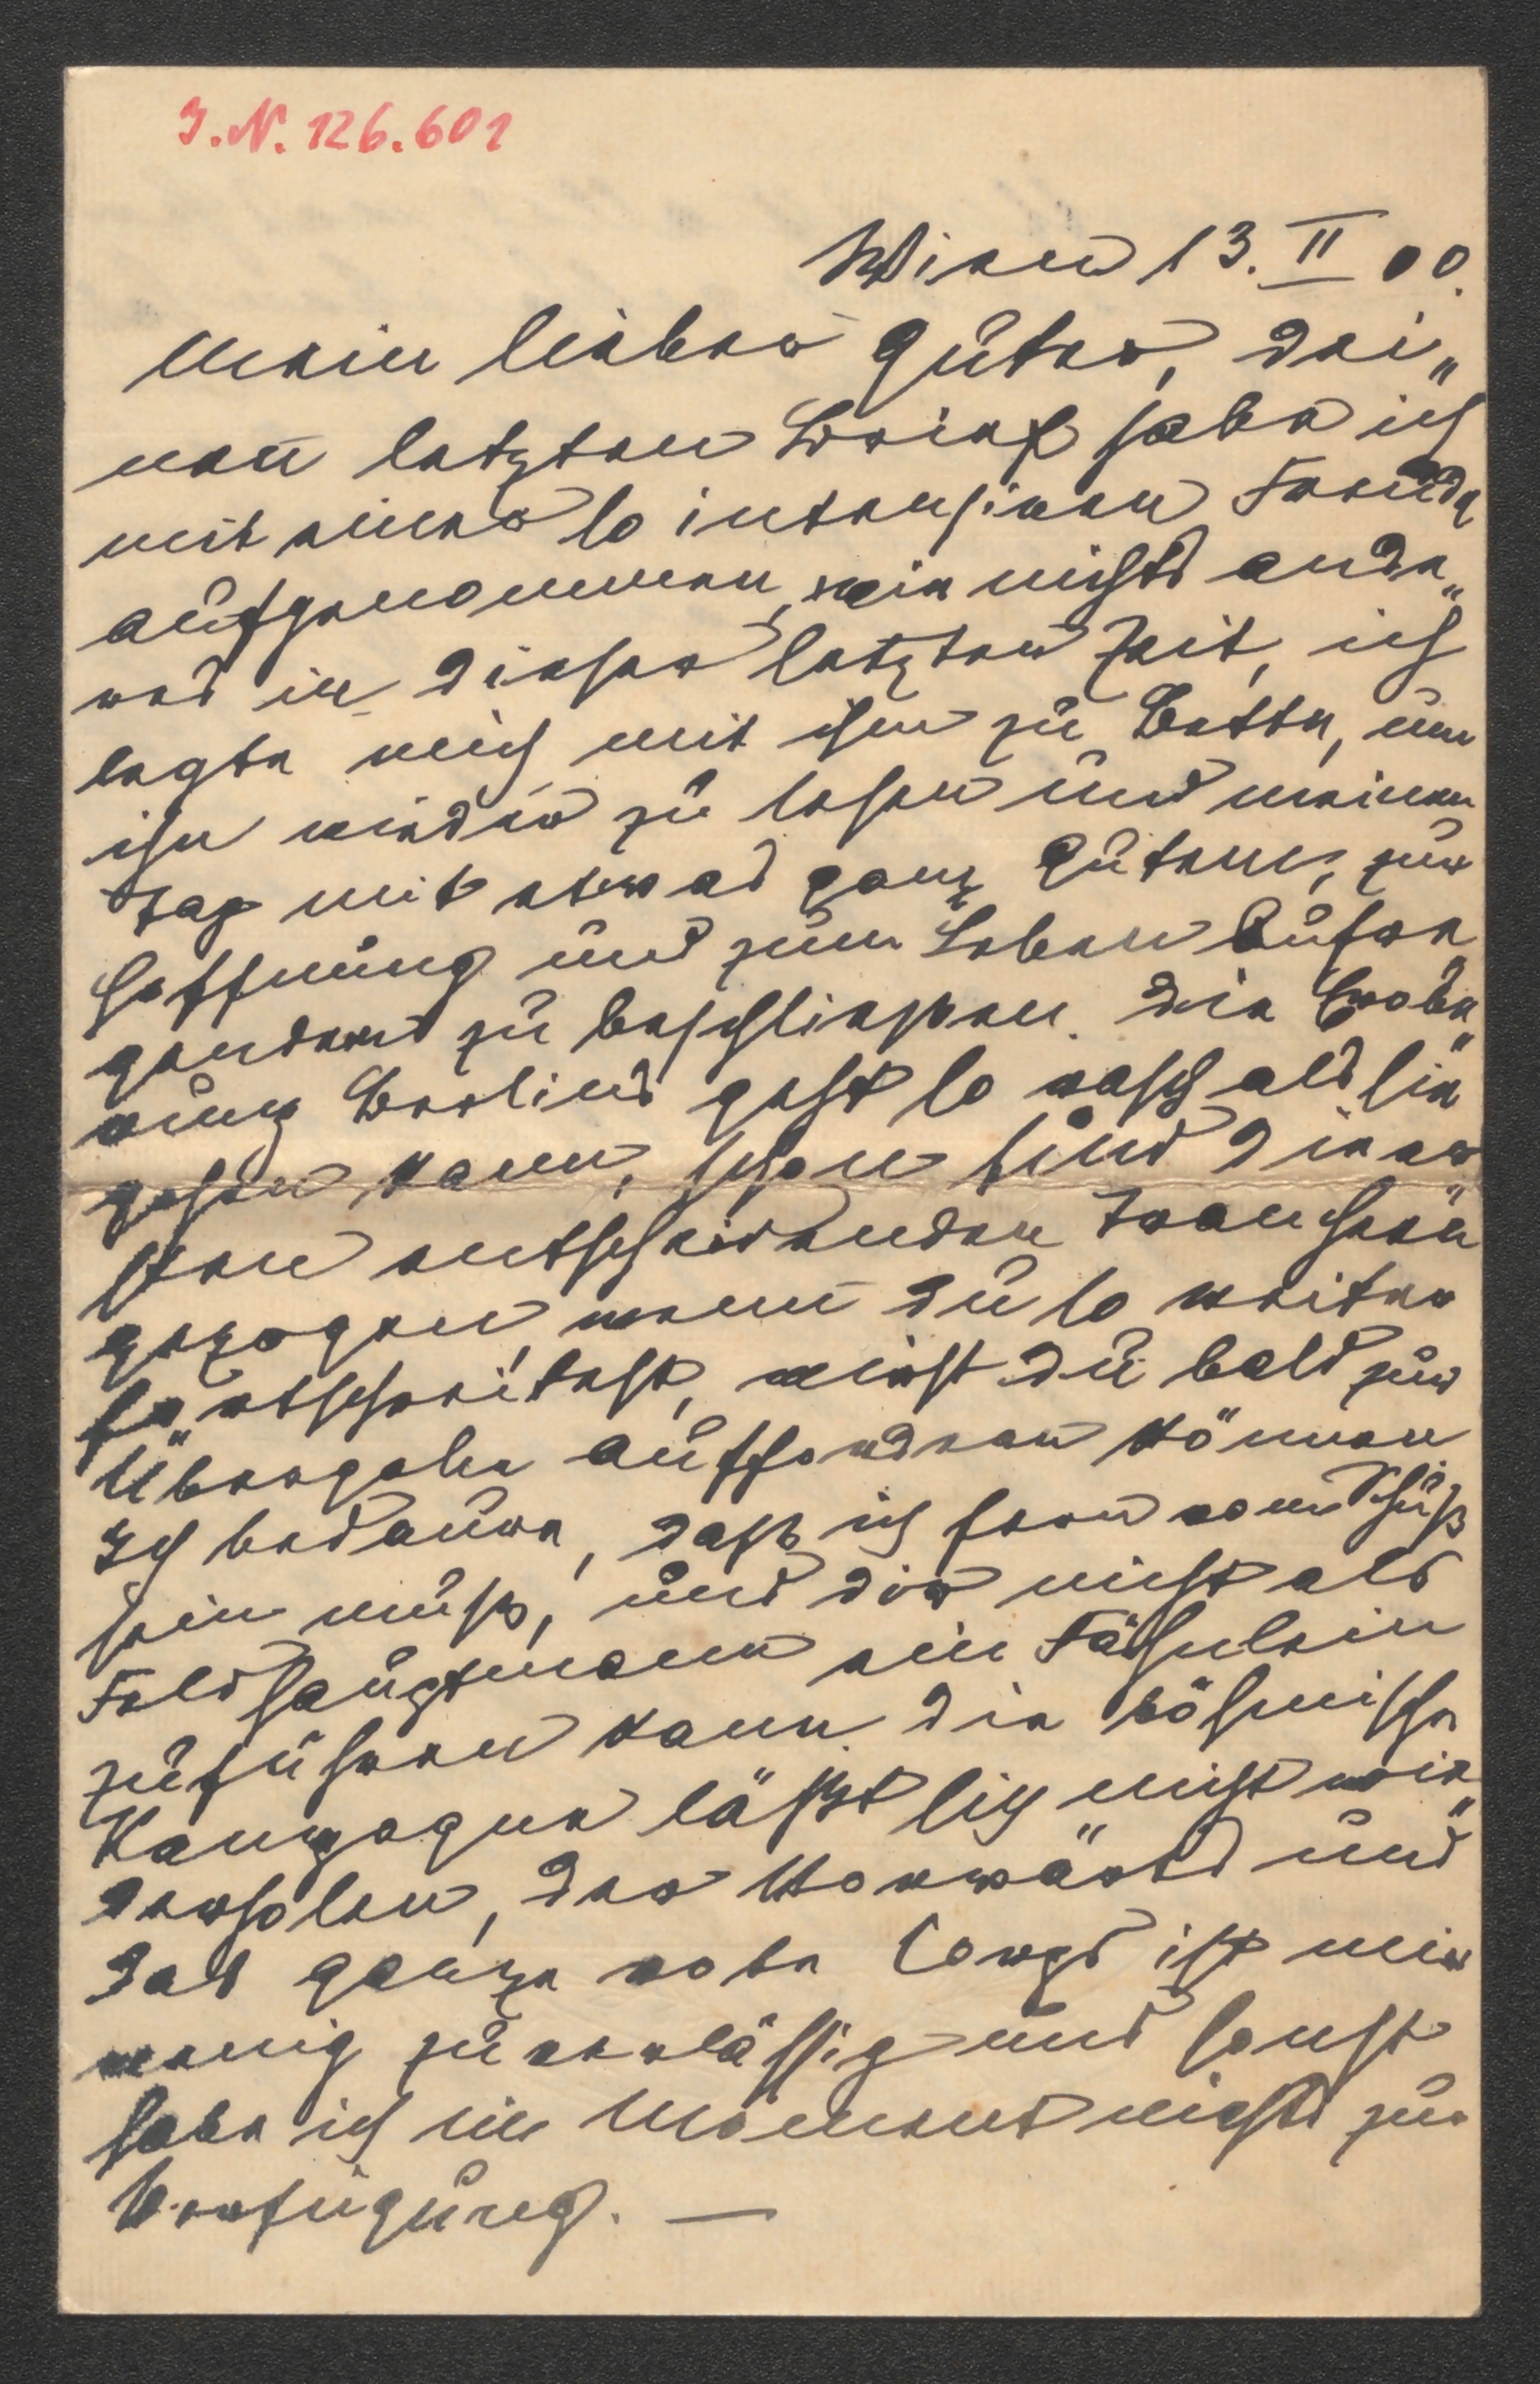 I.N. 126.601
Wien 13. II 00.
Mein lieber Guter, dei„
nen letzten Brief habe ich
mit einer so intensiven Freude
aufgenommen, wie nichts ande„
res in dieser letzten Zeit, ich
legte mich mit ihm zu Bette, um
ihn wieder zu lesen und meinen
Tag mit etwas ganz Gutem, zur
Hoffnung und zum Leben Aufre„
gendem zu beschliessen. Die Erobe„
rung Berlins geht so rasch als sie
gehen kann, schon sind die er„
sten entscheidenden Trancheen
gezogen, wenn du so weiter
fortschreitest, wirst du bald zur
Übergabe auffordern können
Ich bedauere, dass ich fern vom Schuß
sein muss, und dir nicht als
Feldhauptmann ein Fähnlein
zuführen kann. Die böhmische
Kampagne läßt sich nicht wie„
derholen, der Vorwärts und
das ganze rote Corps ist mir
wenig zuverlässig und sonst
habe ich im Moment nichts zur
Verfügung. —